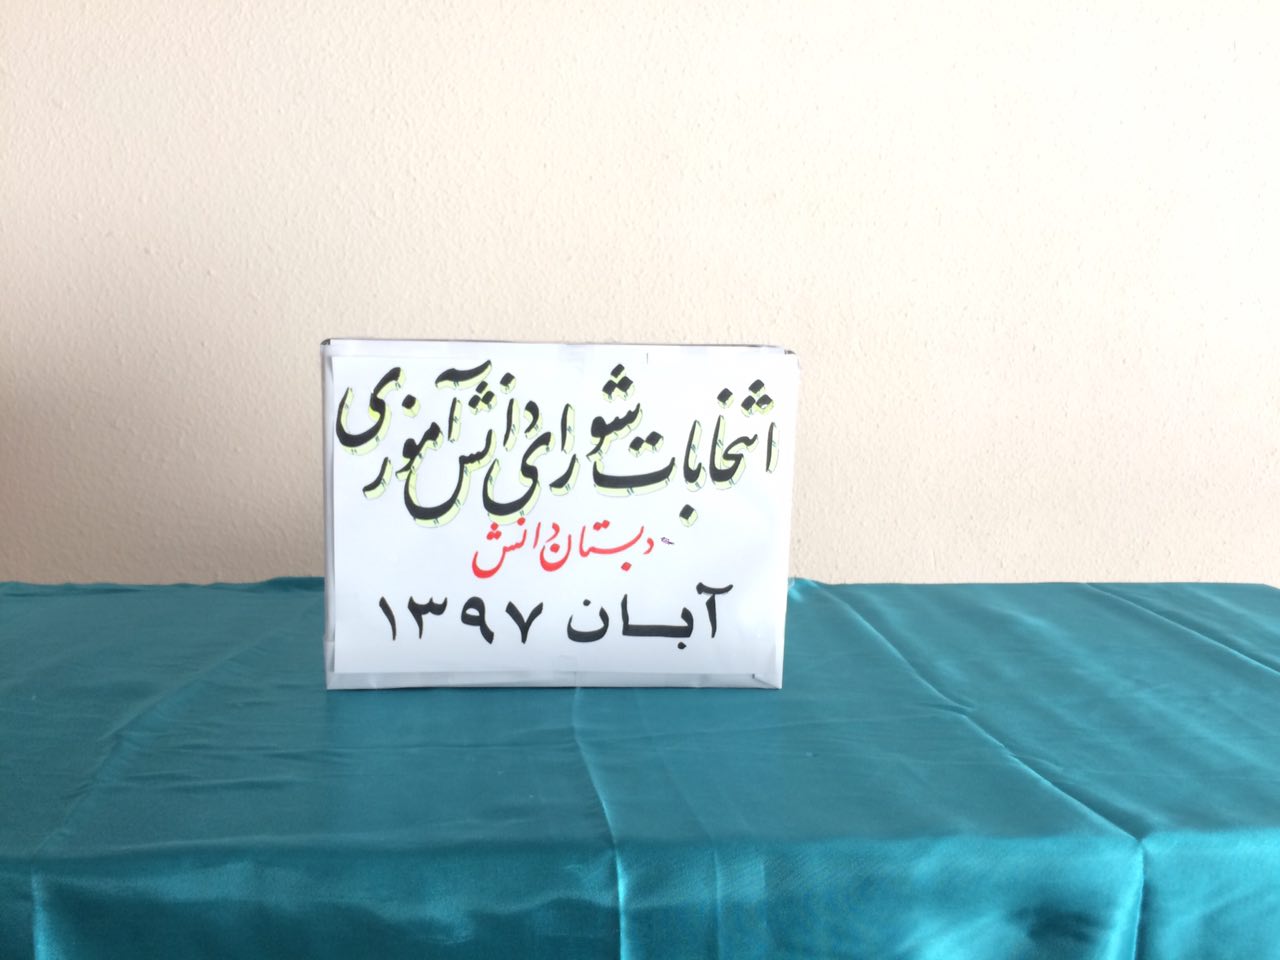 انتخابات شورای دانش آموزی
دبستان دانش
آبان ۱۳۹۷